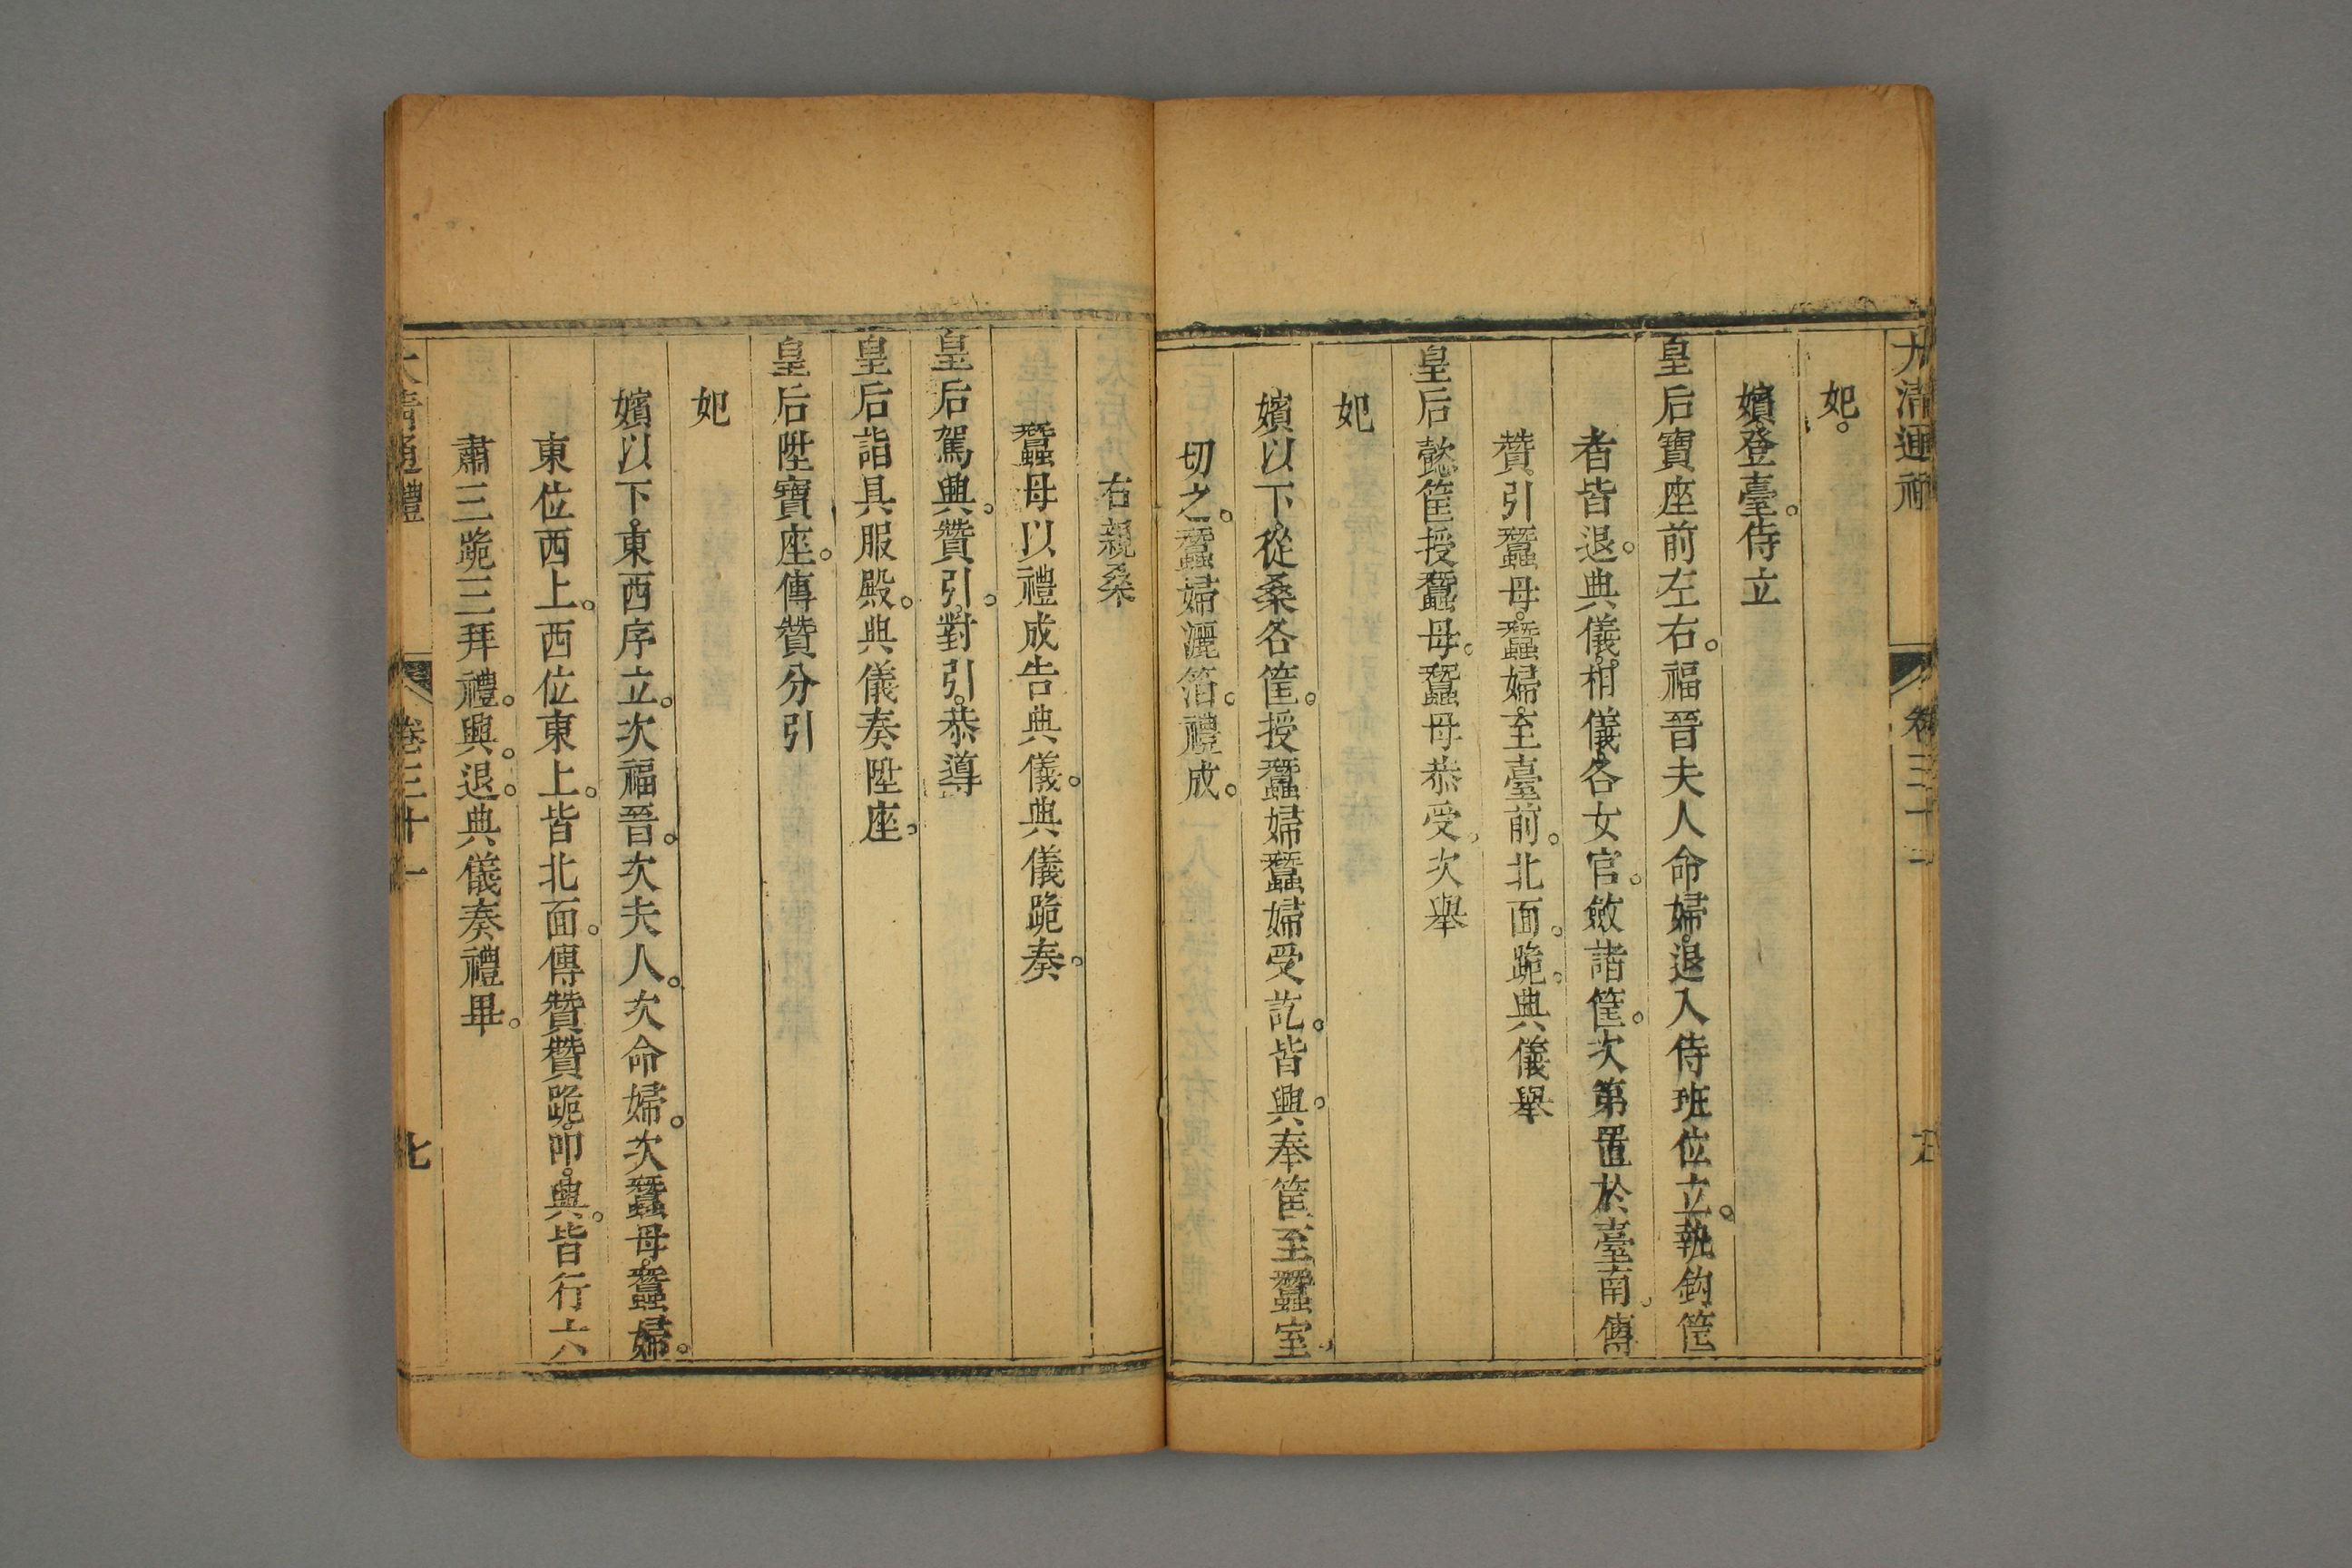 大清通禮 卷三十一
妃。
嬪。登臺。侍立
皇后寶座前左右。福晉夫人命婦。退入侍班位立。執鈎筐
者皆退。典儀。相儀。各女官。斂諸筐。次第置於臺南。傳
贊。引蠶母。蠶婦。至臺前。北面。跪。典儀舉
皇后懿筐授蠶母。蠶母恭受。次舉
妃
嬪以下。從桑各筐。授蠶婦蠶婦受訖。皆興。奉筐至蠶室。
切之。蠶婦灑箔。禮成。
右親桑
蠶母以禮成告典儀。典儀跪奏。
皇后駕興。贊引。對引。恭導
皇后詣具服殿。典儀奏陞座。
皇后陞寶座。傳贊分引
妃
嬪以下。東西序立。次福晉。次夫人。次命婦。次蠶母。蠶婦。
東位西上。西位東上。皆北面。傳贊贊跪。叩。興。皆行六
肅三跪三拜禮。興。退。典儀奏禮畢。
大清通禮 卷三十一 七